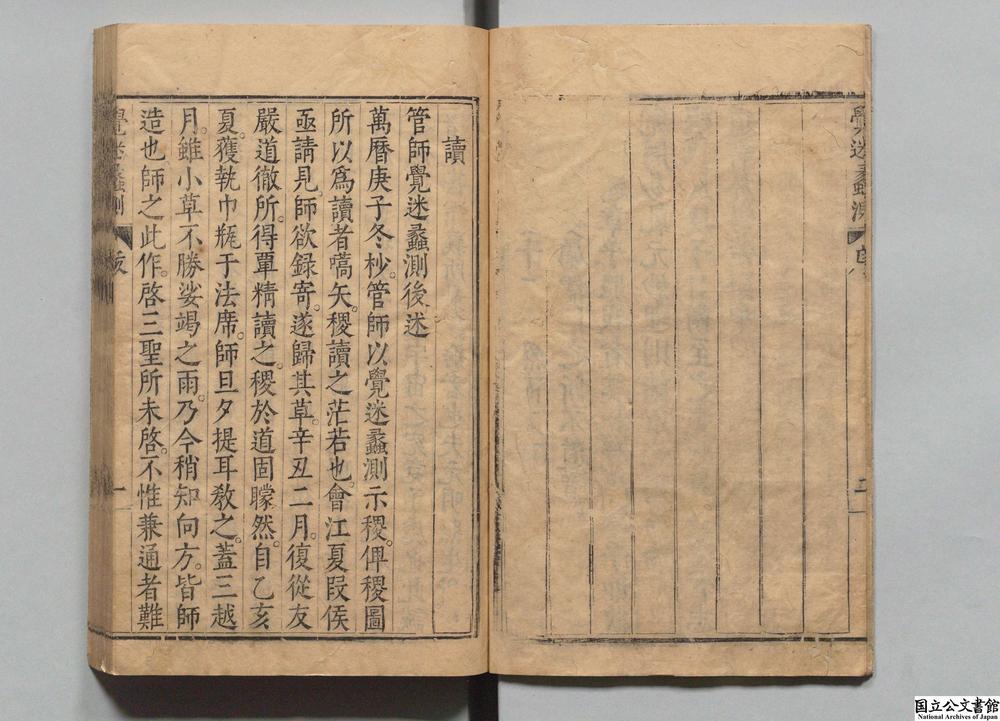 覺迷蠡測
二
讀
管師覺迷蠡測後述
萬曆庚子冬杪。管師以覺迷蠡測示稷。俾稷圖
所以爲讀者嚆矢。稷讀之茫若也。會江夏叚侯
亟請見。師欲録寄。遂歸其草。辛丑二月。復從友
嚴道徹所。得覃精讀之。稷於道固矇然。自乙亥
夏。獲執巾瓶于法席。師旦夕提耳教之。蓋三越
月。雖小草不勝娑竭之雨。乃今稍知向方。皆師
造也師之此作。啓三聖所未啓。不惟兼通者難
覺迷蠡測
一
国立公文書館
National Archives of Japan